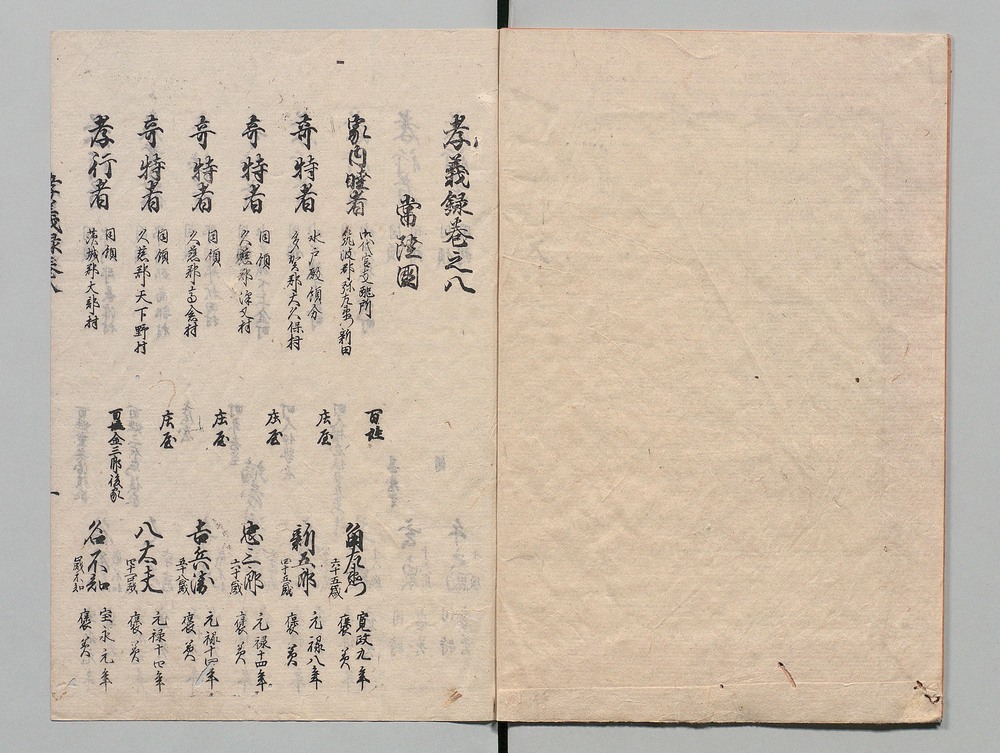 孝義録巻之八
常陸國
家内睦者
御代官支配所
筑波郡弥左衛門新田
百姓
角左衛門
六十五歳
寛政九年
褒美
奇特者
水戸殿領分
多賀郡大久保村
庄屋
新五郎
四十五歳
元禄八年
褒美
奇特者
同領
久慈郡深叉村
庄屋
忠三郎
六十歳
元禄十四年
褒美
奇特者
同領
久慈郡高倉村
庄屋
吉兵衛
五十八歳
元禄十四年
褒美
奇特者
同領
久慈郡天下野村
庄屋
八大夫
四十四歳
元禄十四年
褒美
孝行者
同領
茨城郡大部村
百姓金三郎後家
名不知
歳不知
宝永元年
褒美
孝義録巻八
一